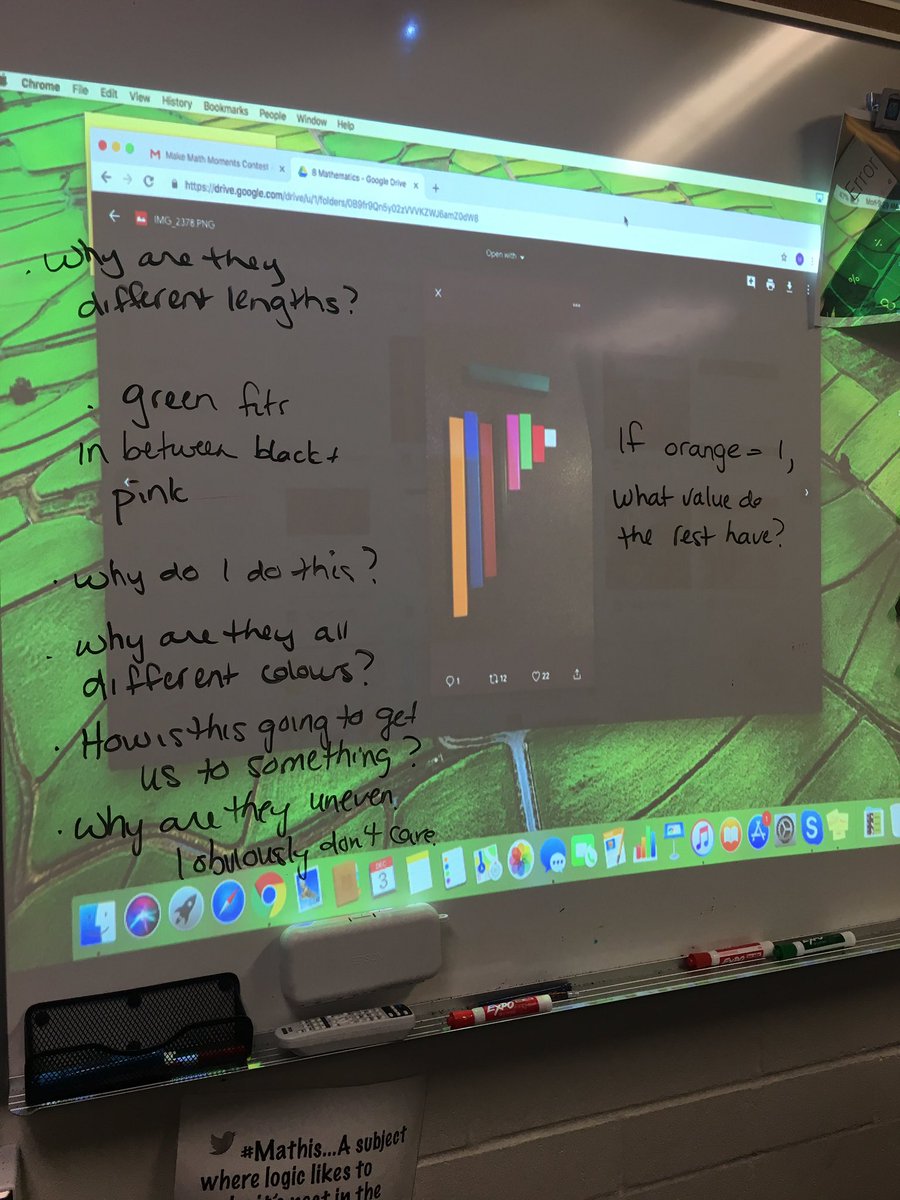 Chrome File Edit View History Bookmarks People Window Help
Make Math Moments Contest
8 Mathematics - Google Drive
IMG_2378.PNG
Open with
Error
. Why are they
different lengths?
. green fits
in between black +
pink
. Why do I do this?
. Why are they all
different colours?
. How is this going to get
us to something?
. Why are they uneven.
I obviously don't care.
If orange = 1,
what value do
the rest have?
1
12
22
DEC
3
EXPO
EXPO
EXPO
#Mathis...A subject
where logic likes to